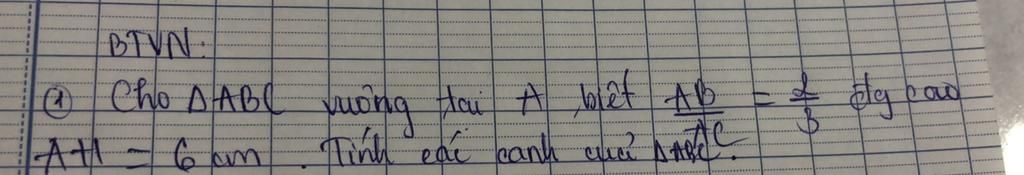 BTVN:
① Cho ΔABC vuông tại A, biết AB/AC = 2/3 đg cao
AH = 6 cm. Tính các cạnh của ΔABC.